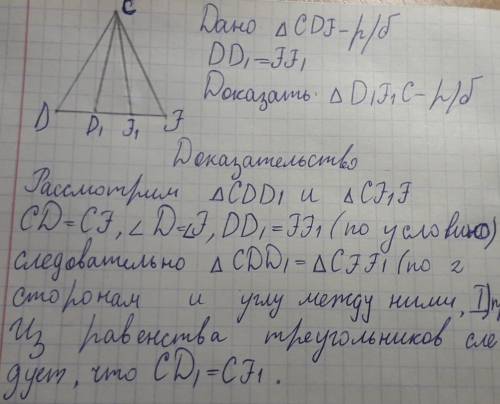 C
Дано △CDF - р/б
DD₁=FF₁
Доказать. △D₁F₁C - р/б
D D₁ F₁ F
Доказательство
Рассмотрим △CDD₁ и △CF₁F
CD=CF, ∠D=∠F, DD₁=FF₁ (по условию)
следовательно △CDD₁=△CFF₁ (по 2
сторонам и углу между ними, I) пр
Из равенства треугольников сле
дует, что CD₁=CF₁.